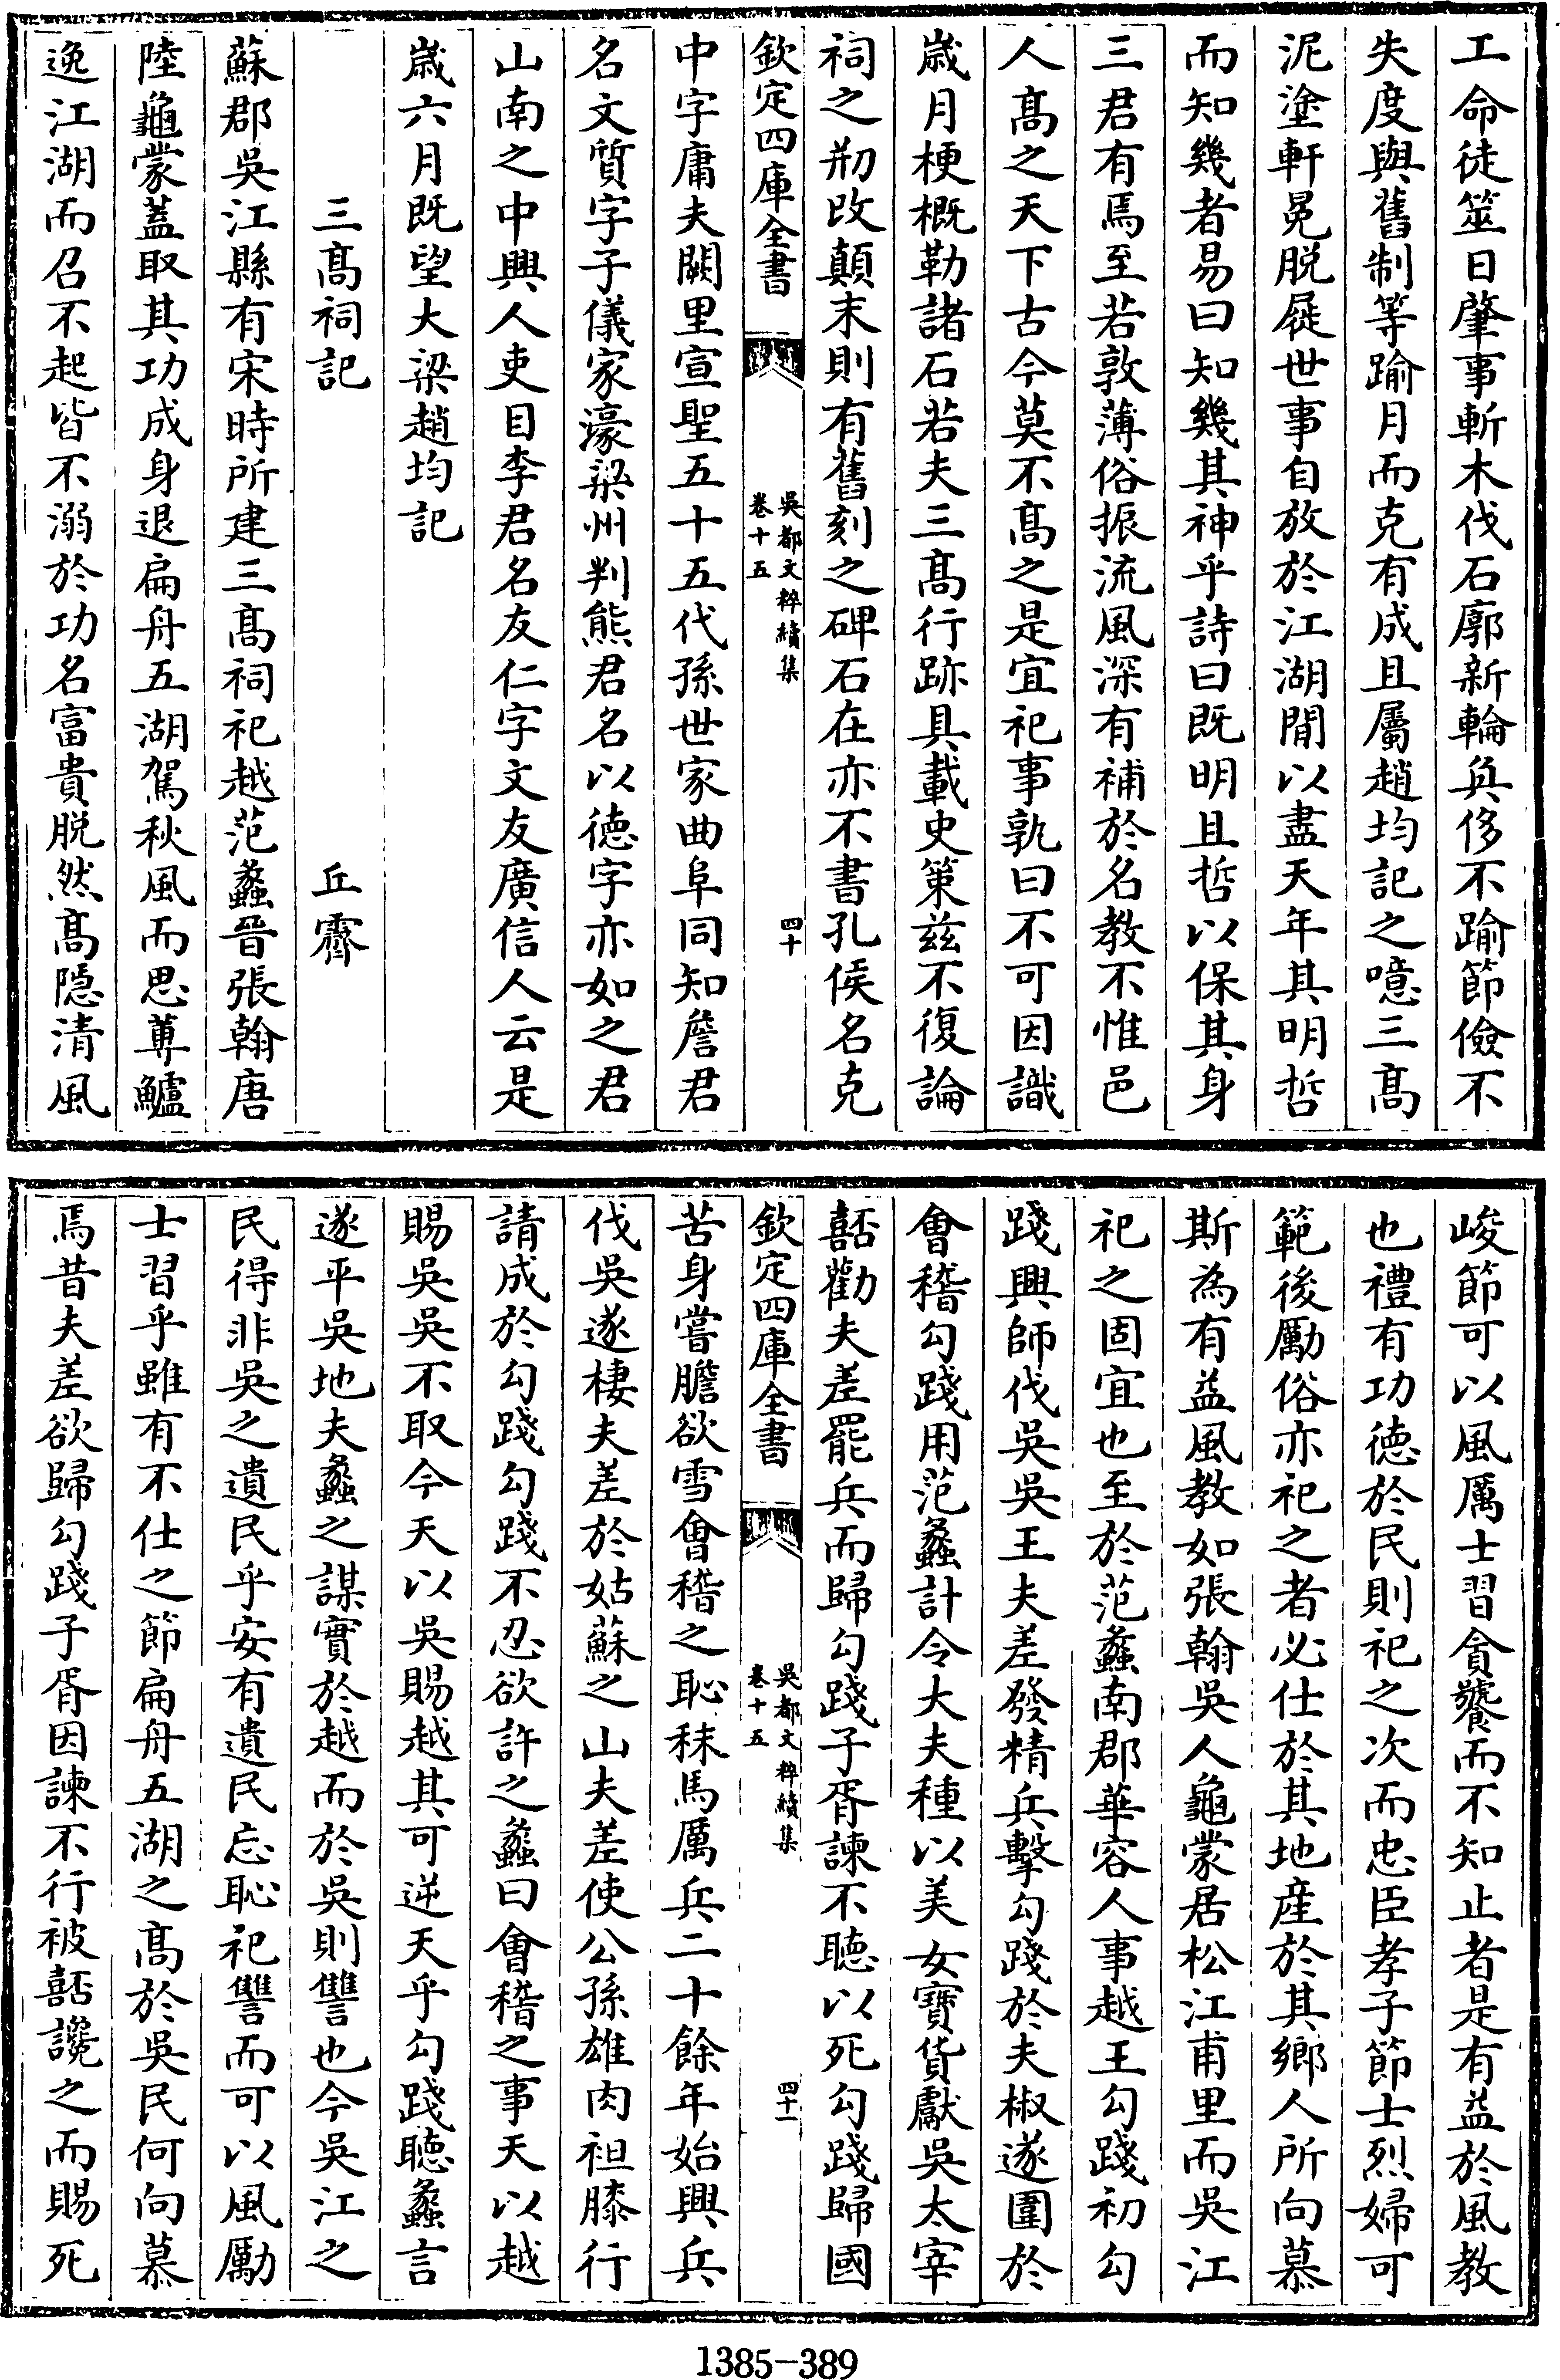 工命徒筮日肇事斬木伐石廓新輪奐侈不踰節儉不
失度與舊制等踰月而克有成且屬趙均記之噫三髙
泥塗軒冕脱屣世事自放於江湖閒以盡天年其明哲
而知幾者易曰知幾其神乎詩曰既明且哲以保其身
三君有焉至若敦薄俗振流風深有補於名教不惟邑
人髙之天下古今莫不髙之是宜祀事孰曰不可因識
歳月梗概勒諸石若夫三髙行跡具載史策兹不復論
祠之刱改顛末則有舊刻之碑石在亦不書孔侯名克
欽定四庫全書
吳都文粹續集
卷十五
四十
中字庸夫闕里宣聖五十五代孫世家曲阜同知詹君
名文質字子儀家濠梁州判熊君名以徳字亦如之君
山南之中興人吏目李君名友仁字文友廣信人云是
歳六月既望大梁趙均記
三髙祠記
丘霽
蘇郡吳江縣有宋時所建三髙祠祀越范蠡晉張翰唐
陸龜蒙蓋取其功成身退扁舟五湖駕秋風而思蓴鱸
逸江湖而召不起皆不溺於功名富貴脱然髙隠清風
峻節可以風厲士習貪饕而不知止者是有益於風教
也禮有功徳於民則祀之次而忠臣孝子節士烈婦可
範後勵俗亦祀之者必仕於其地産於其鄉人所向慕
斯為有益風教如張翰吳人龜蒙居松江甫里而吳江
祀之固宜也至於范蠡南郡華容人事越王勾踐初勾
踐興師伐吳吳王夫差發精兵擊勾踐於夫椒遂圍於
會稽勾踐用范蠡計令大夫種以美女寶貨獻吳太宰
嚭勸夫差罷兵而歸勾踐子胥諫不聴以死勾踐歸國
欽定四庫全書
吳都文粹續集
卷十五
四十一
苦身嘗膽欲雪會稽之恥秣馬厲兵二十餘年始興兵
伐吳遂棲夫差於姑蘇之山夫差使公孫雄肉袒膝行
請成於勾踐勾踐不忍欲許之蠡曰會稽之事天以越
賜吳吳不取今天以吳賜越其可逆天乎勾踐聴蠡言
遂平吳地夫蠡之謀實於越而於吳則讐也今吳江之
民得非吳之遺民乎安有遺民忘恥祀讐而可以風勵
士習乎雖有不仕之節扁舟五湖之髙於吳民何向慕
焉昔夫差欲歸勾踐子胥因諫不行被嚭讒之而賜死
1385-389